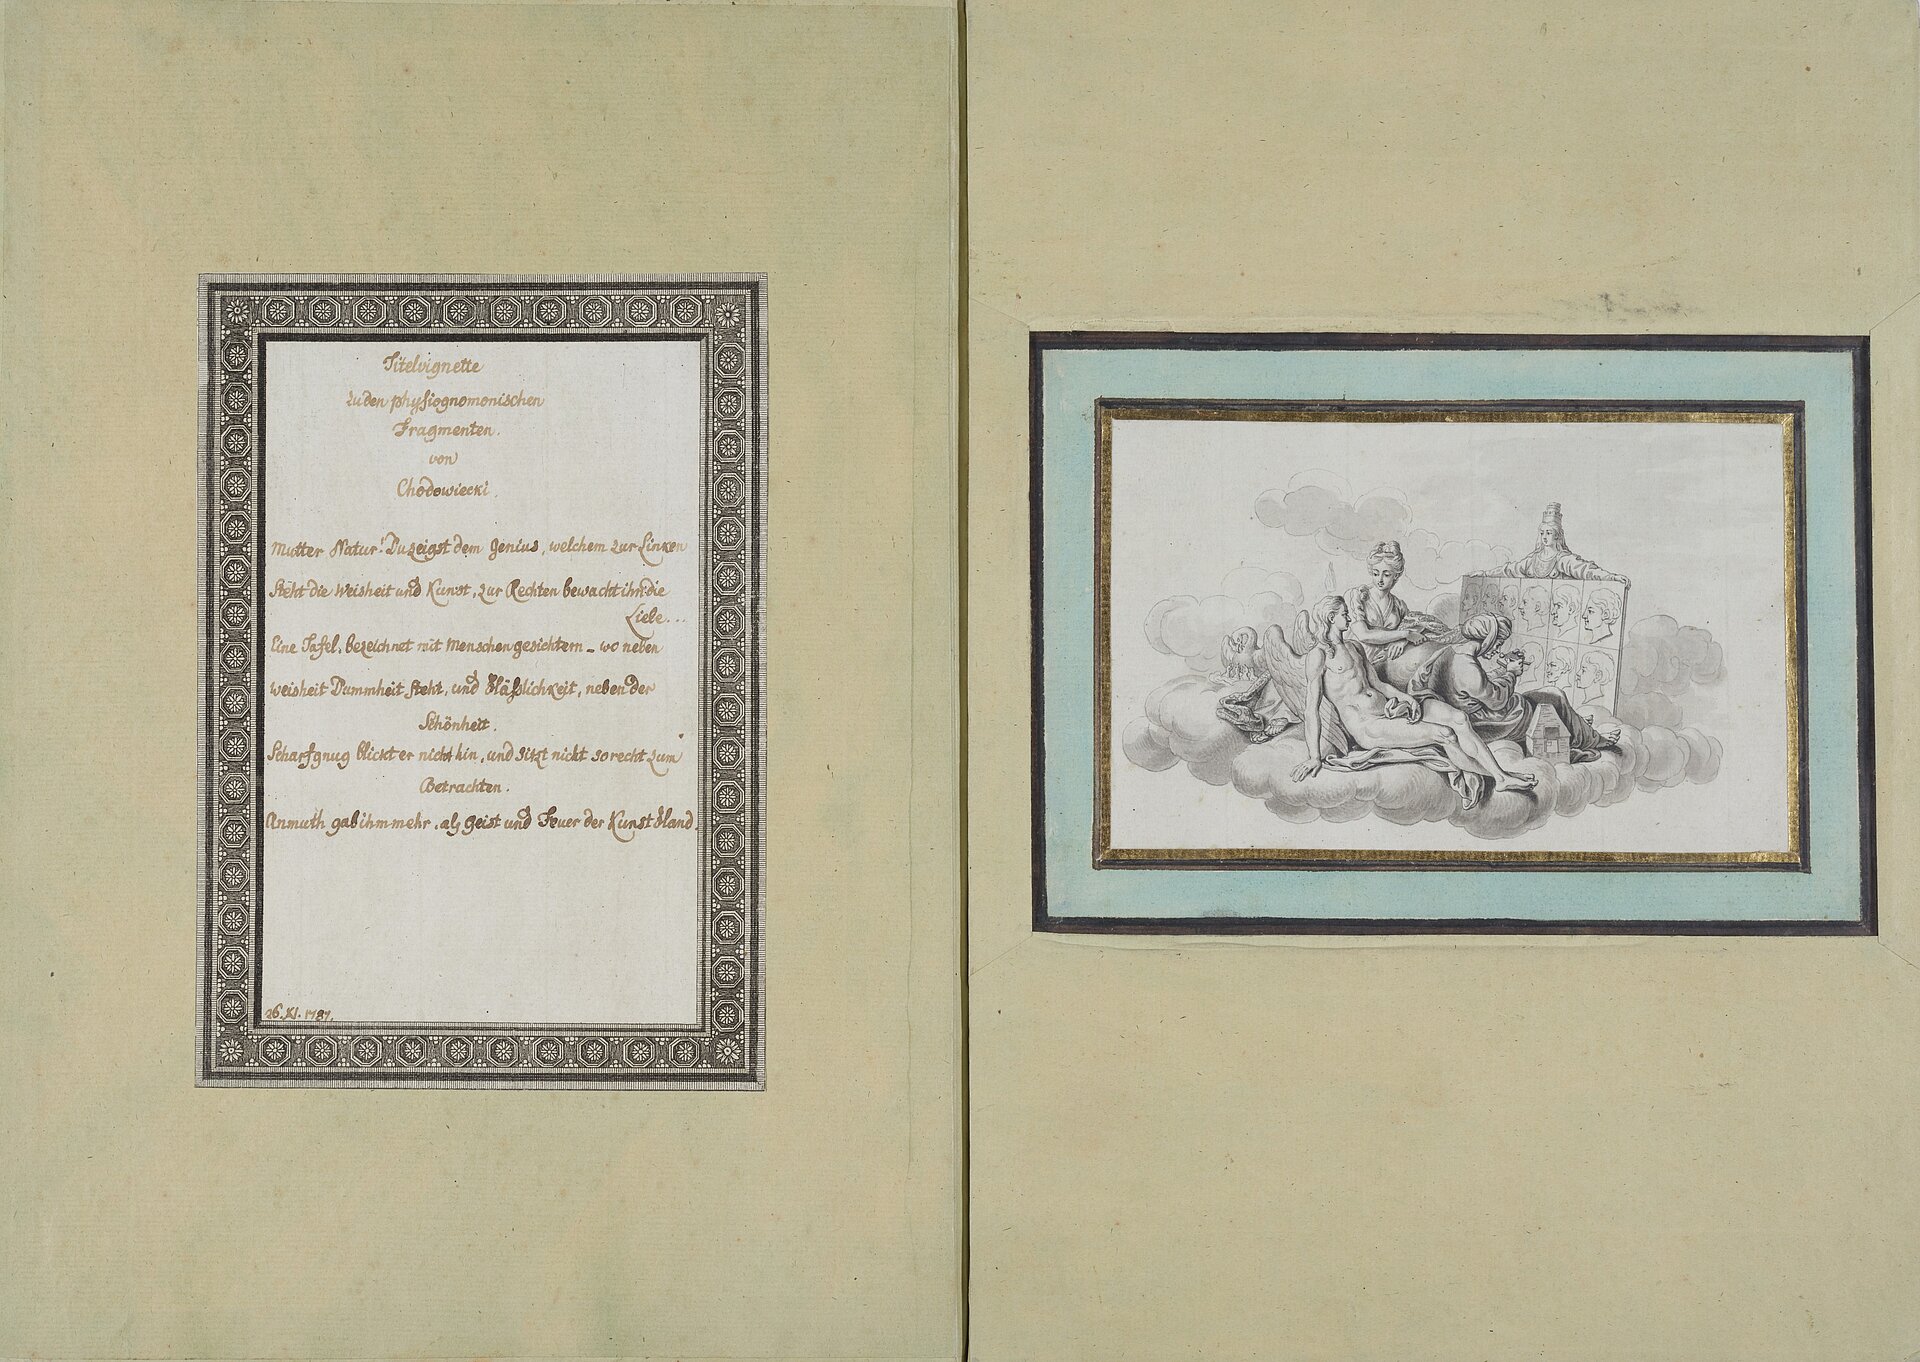 Titelvignette
zu den physiognomonischen
Fragmenten.
von
Chodowiecki.
Mutter Natur! Du zeigst dem Genius, welchem zur Linken
Steht die Weisheit und Kunst, zur Rechten bewacht ihn die
Liebe...
Eine Tafel, bezeichnet mit Menschengesichtern – wo neben
weisheit Dummheit steht, und Häßlichkeit, neben der
Schönheit.
Scharfgnug blickt er nicht hin, und sitzt nicht so recht zum
Betrachten.
Anmuth gab ihm mehr, als Geist und Feuer der Kunst Hand.
26. XI. 1787.